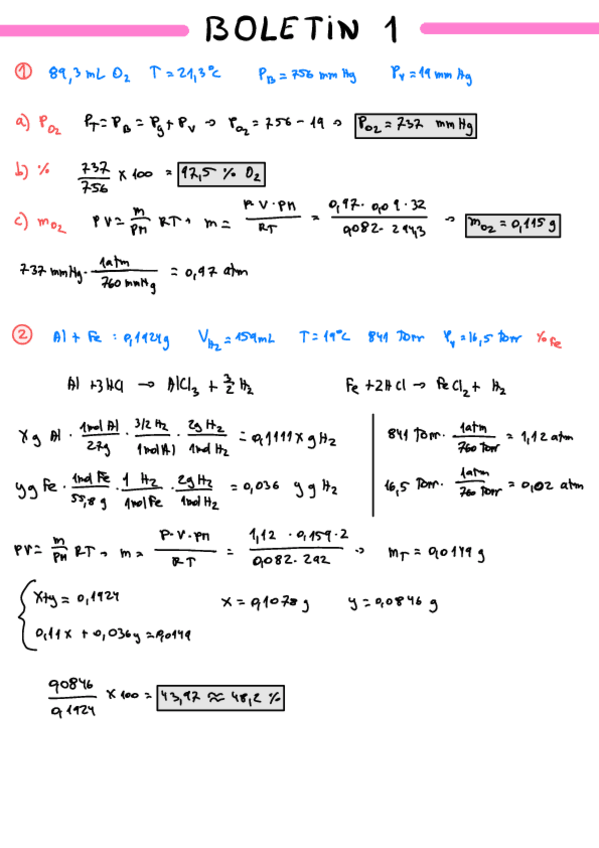 BOLETIN 1
① 89,3 mL O₂ T = 21,3°C P_B = 756 mm Hg P_V = 19 mm Hg
a) P_O₂ P_T = P_B = P_g + P_V → P_O₂ = 756 - 19 → P_O₂ = 737 mm Hg
b) % 737/756 x 100 = 97,5 % O₂
c) m_O₂ PV = m/PM RT → m = P·V·PM/RT = 0,97·0,09·32/0,082·294,3 → m_O₂ = 0,115 g
737 mmHg · 1atm/760 mmHg = 0,97 atm
② Al + Fe : 0,1924g V_H₂ = 159mL T = 19°C 841 Torr P_V = 16,5 Torr % Fe
Al + 3HCl → AlCl₃ + 3/2 H₂ Fe + 2HCl → FeCl₂ + H₂
x g Al · 1mol Al/27g · 3/2 H₂/1mol Al · 2g H₂/1mol H₂ = 0,1111 x g H₂ 841 Torr · 1atm/760 Torr = 1,12 atm
y g Fe · 1mol Fe/55,8 g · 1 H₂/1mol Fe · 2g H₂/1mol H₂ = 0,036 y g H₂ 16,5 Torr · 1atm/760 Torr = 0,02 atm
PV = m/PM RT → m = P·V·PM/RT = 1,12·0,159·2/0,082·292 → m_T = 0,0149 g
x+y = 0,1924 x = 0,1078 g y = 0,0846 g
0,11x + 0,036y = 0,0149
0,0846/0,1924 x 100 = 43,97 ≈ 48,2 %